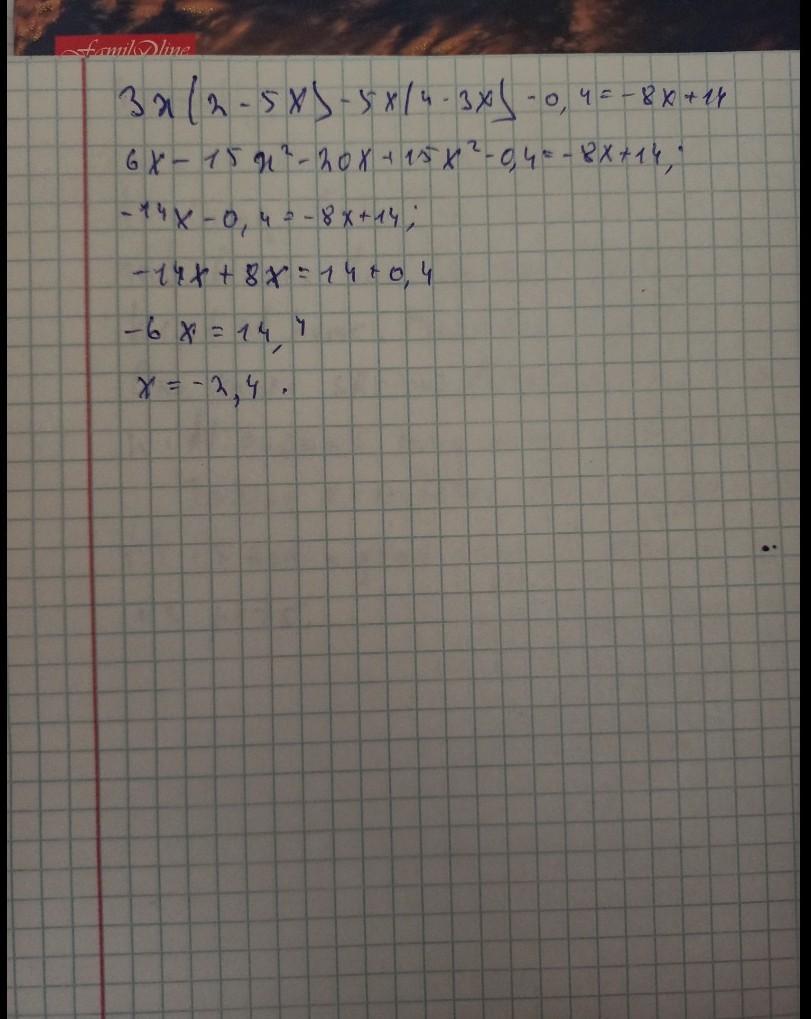 FamilDline
3x(2-5x)-5x(4-3x)-0,4=-8x+14
6x-15x²-20x+15x²-0,4=-8x+14;
-14x-0,4=-8x+14;
-14x+8x=14+0,4
-6x=14,4
x=-2,4.